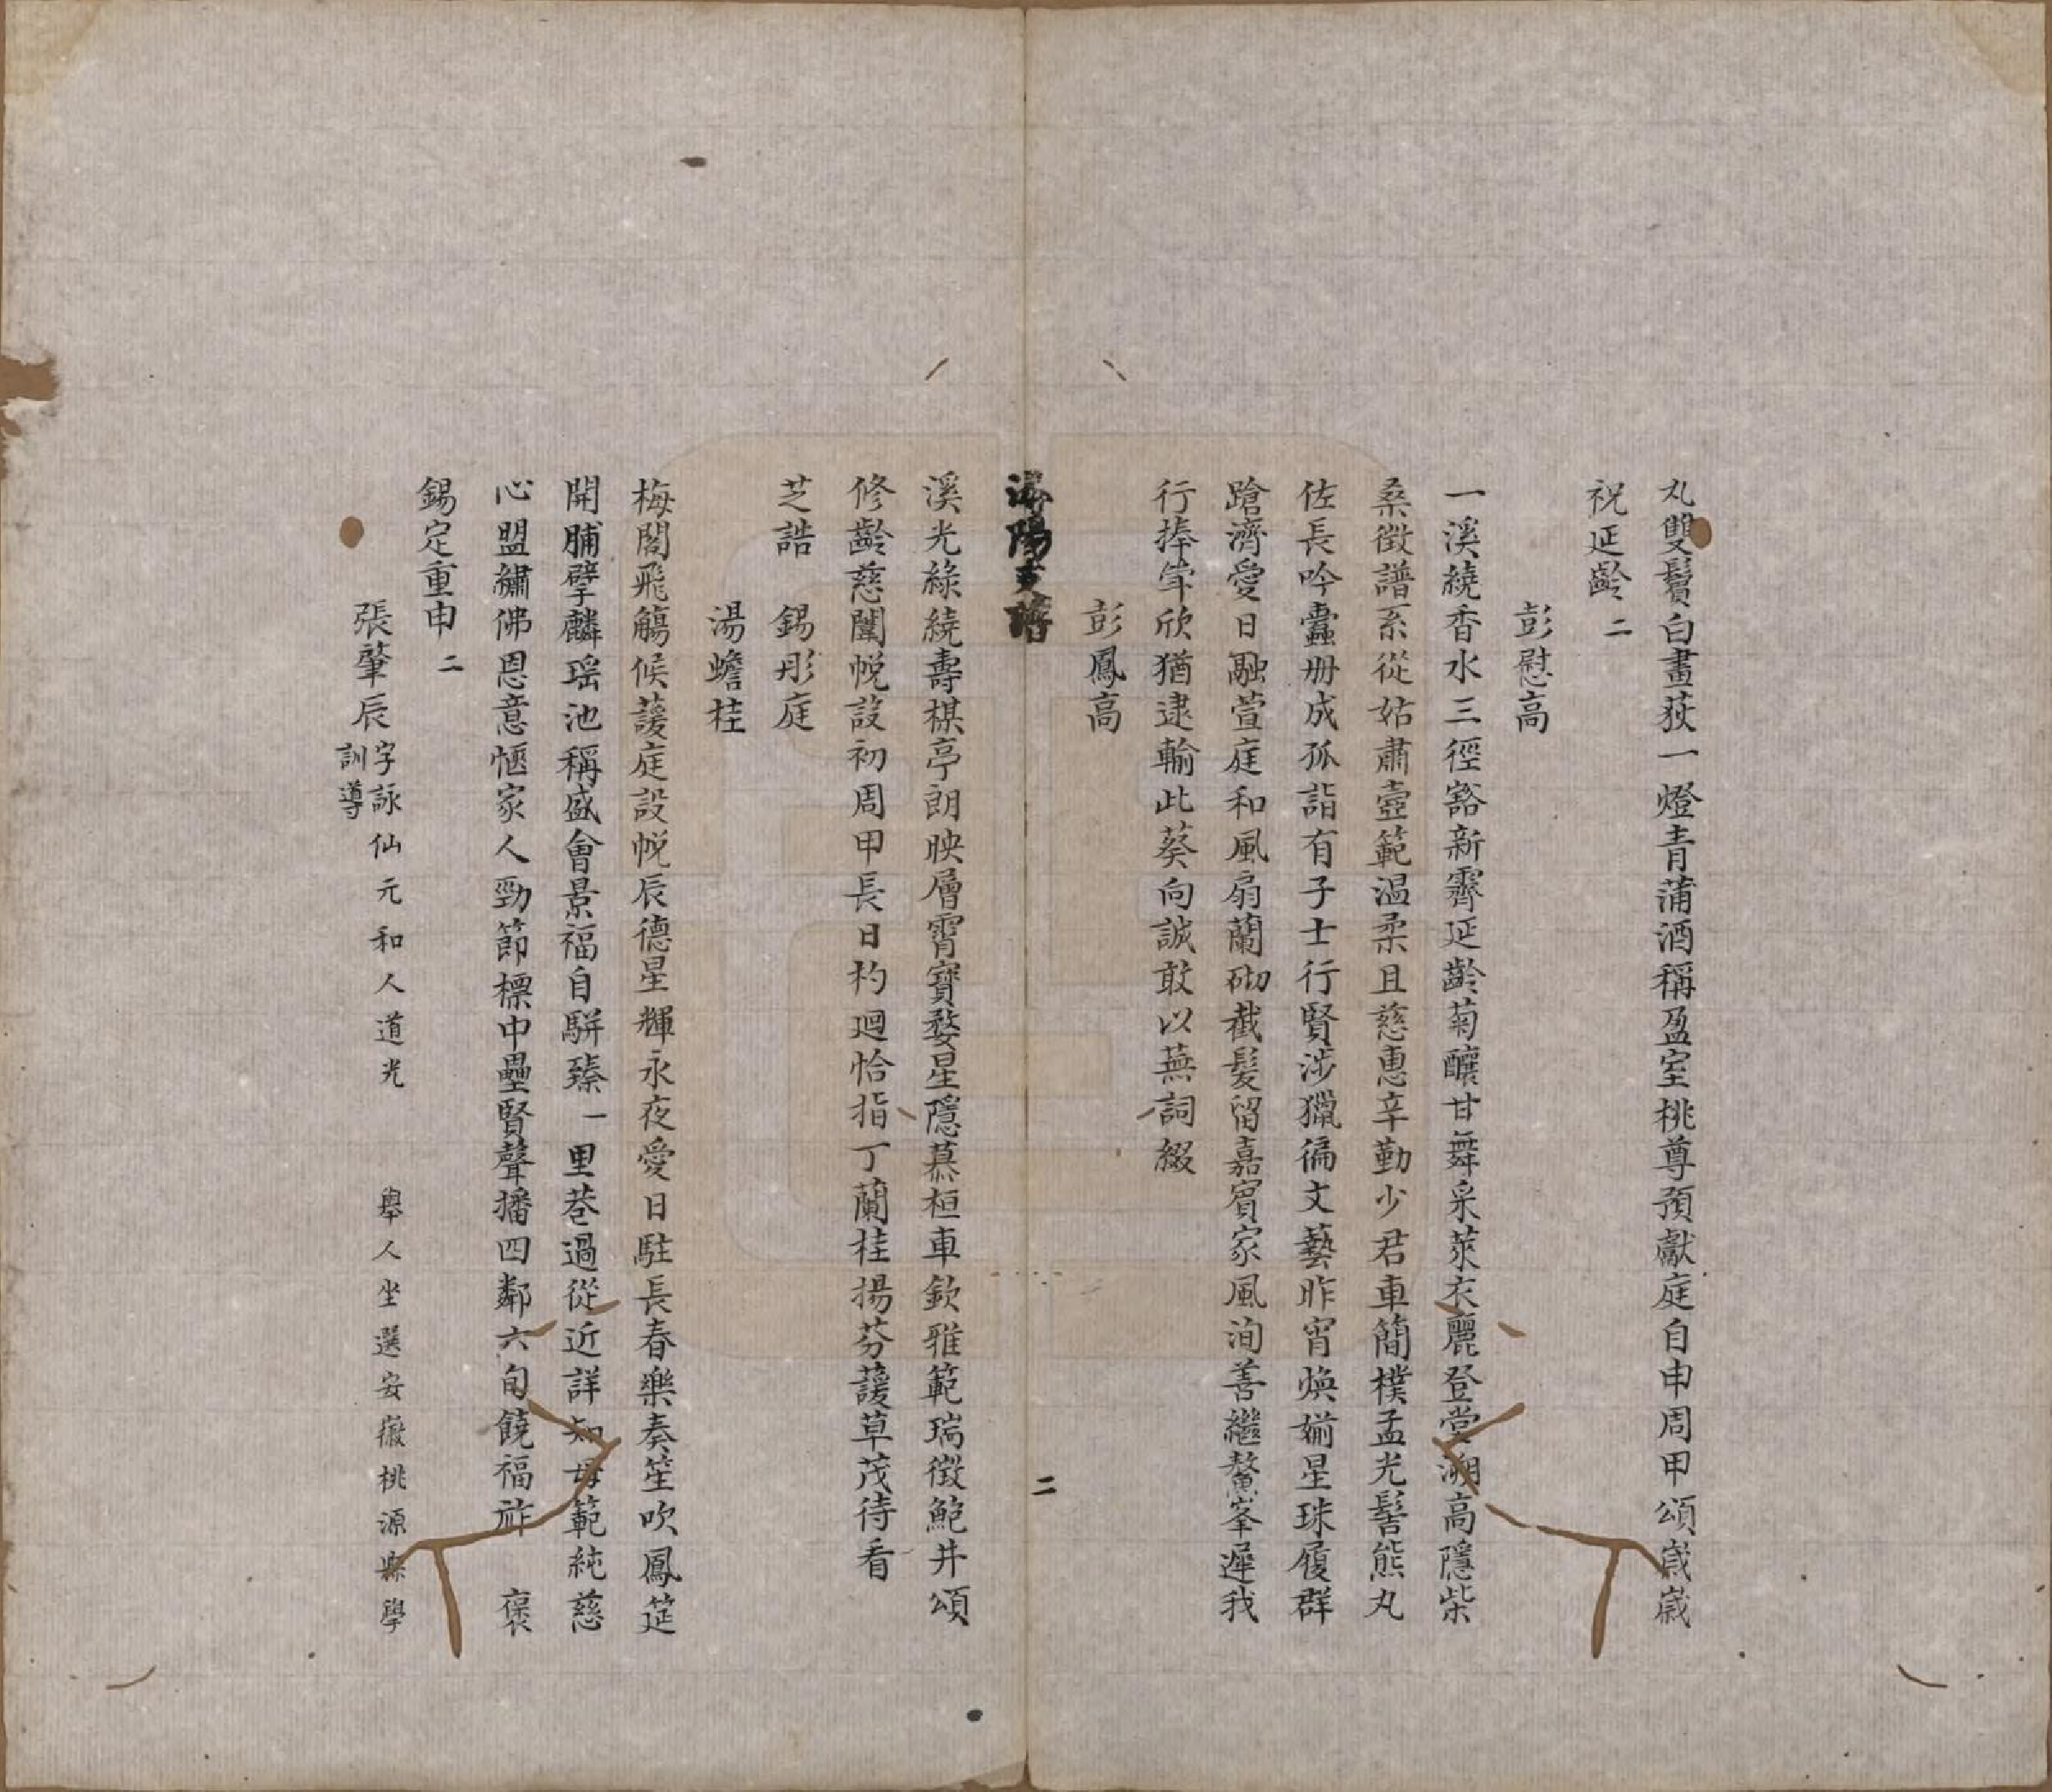 丸雙鬢白畫荻一燈青蒲酒稱盈室桃尊預獻庭自申周甲頌歲歲
祝延齡二
彭慰高
一溪繞香水三徑豁新霽延齡菊釀甘舞采萊衣麗登堂溯高隱柴
桑徵譜系從姑肅壼範溫柔且慈惠辛勤少君車簡樸孟光髻熊丸
佐長吟蠹册成孤詣有子士行賢涉獵徧文藝昨宵煥媊星珠履群
蹌濟愛日融萱庭和風扇蘭砌截髮留嘉賓家風洵善繼鰲峯遲我
行捧斝欣猶逮輸此葵向誠敢以蕪詞綴
彭鳳高
潯陽支譜
二
溪光綠繞壽楳亭朗映層霄寶婺星隱慕桓車欽雅範瑞徵鮑井頌
修齡慈闈帨設初周甲長日杓迴恰指丁蘭桂揚芬護草茂待看
芝誥　錫彤庭
湯蟾桂
梅閣飛觴候蘐庭設帨辰德星輝永夜愛日駐長春樂奏笙吹鳳筵
開脯擘麟瑤池稱盛會景福自駢臻一里巷過從近詳知母範純慈
心盟繡佛恩意愜家人勁節標中壘賢聲播四鄰六旬饒福祚　褒
錫定重申二
張肇辰字詠仙元和人道光　舉人坐選安徽桃源縣學
訓導